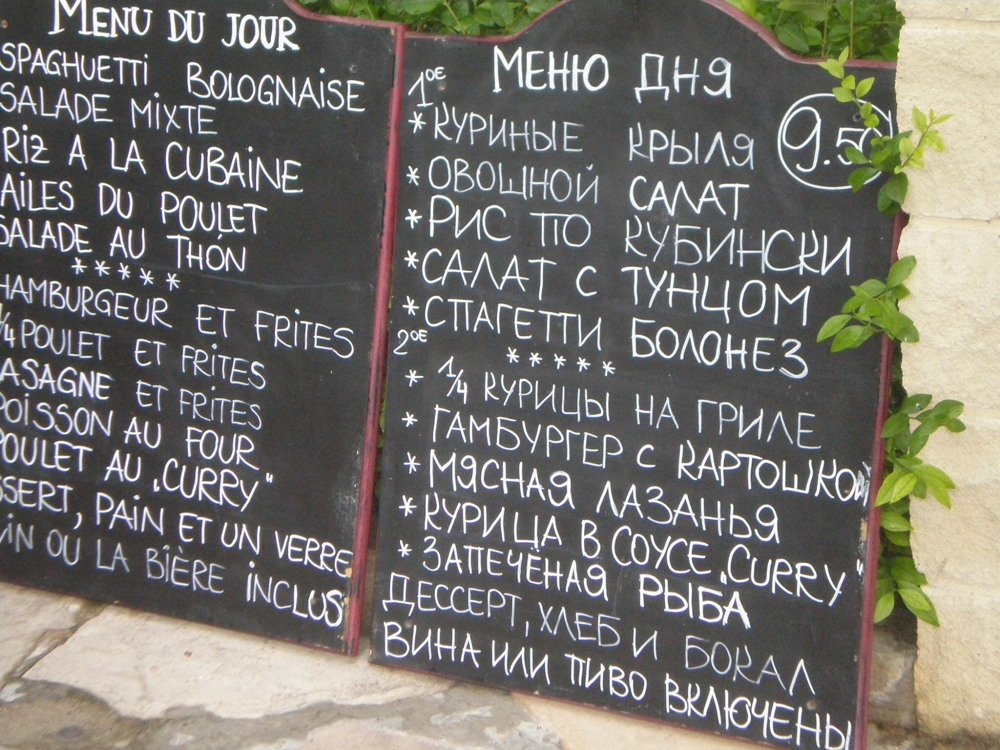 MENU DU JOUR
SPAGHUETTI BOLOGNAISE
SALADE MIXTE
RIZ A LA CUBAINE
AILES DU POULET
SALADE AU THON
*****
HAMBURGEUR ET FRITES
1/4 POULET ET FRITES
ASAGNE ET FRITES
POISSON AU FOUR
POULET AU „CURRY"
SSERT, PAIN ET UN VERRE
IN OU LA BIÈRE INCLUS
МЕНЮ ДНЯ
1ОЕ
9.50
* КУРИНЫЕ КРЫЛЯ
* ОВОШНОЙ САЛАТ
* РИС ПО КУБИНСКИ
* САЛАТ С ТУНЦОМ
* СПАГЕТТИ БОЛОНЕЗ
2ОЕ
*****
* 1/4 КУРИЦЫ НА ГРИЛЕ
* ГАМБУРГЕР С КАРТОШКОЙ
* МЯСНАЯ ЛАЗАНЬЯ
* КУРИЦА В СОУСЕ „CURRY"
* ЗАПЕЧЁНАЯ РЫБА
ДЕССЕРТ, ХЛЕБ И БОКАЛ
ВИНА ИЛИ ПИВО ВКЛЮЧЕНЫ